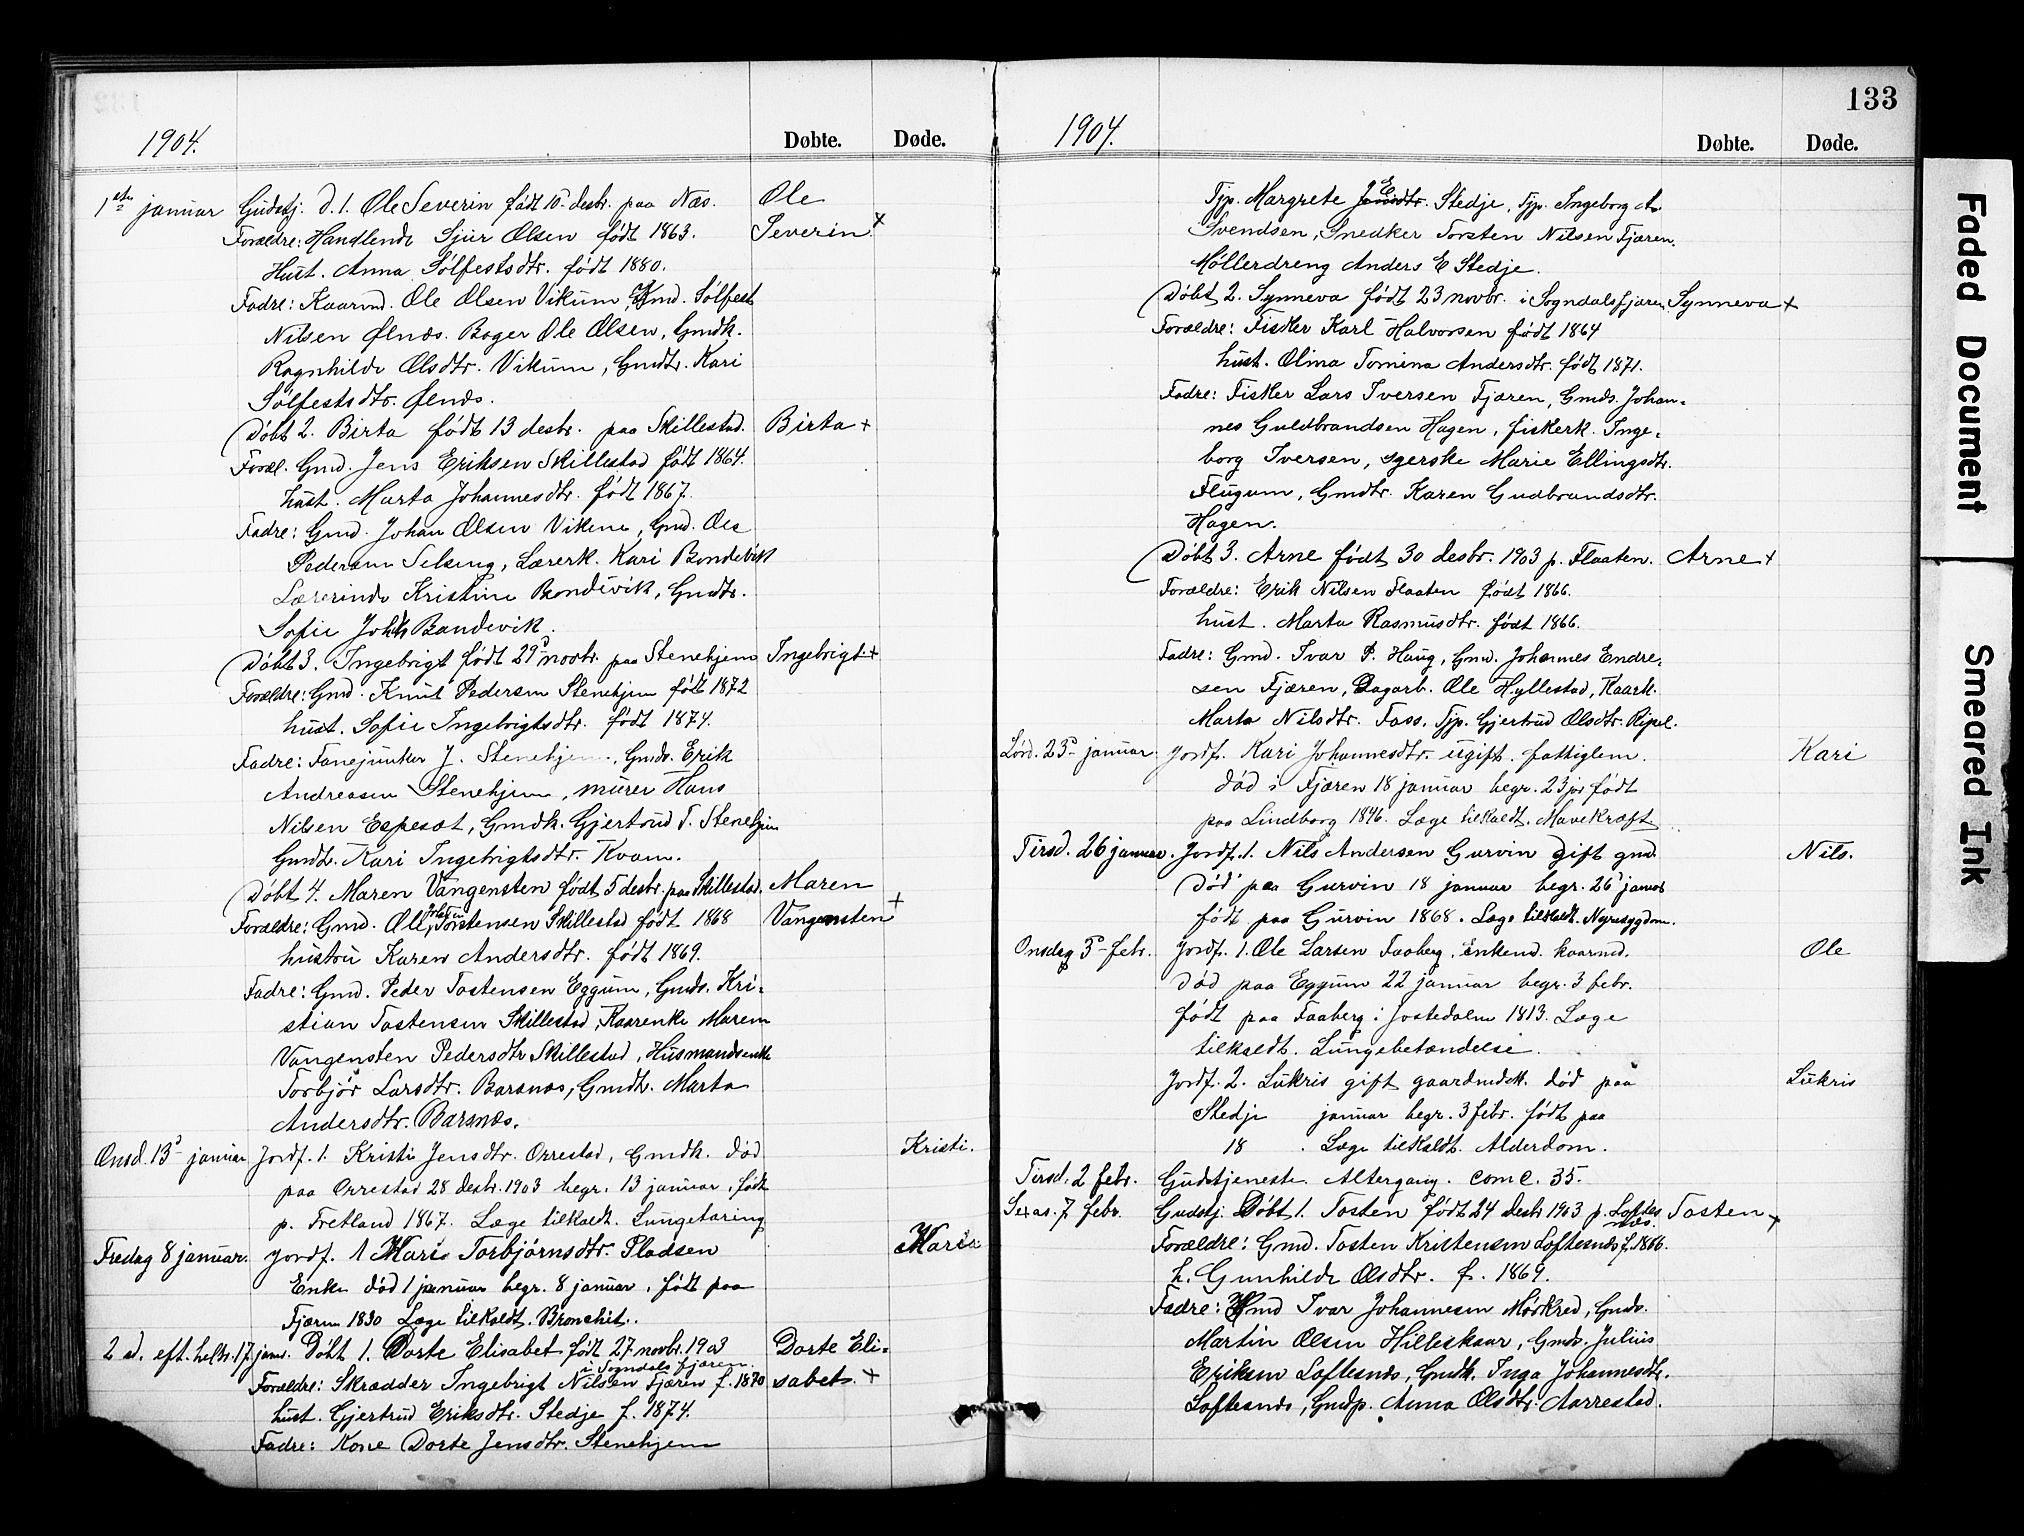 1904.
Døbte. Døde.
1ste januar Gudstj. D. 1. Ole Severin født 10 desbr. paa Næs. Ole
Forældre: Handlende Sjur Olsen født 1863. Severin +
Hust. Anna Sølfestsdtr. født 1880.
Fadre: Kaarmd. Ole Olsen Vikum, Gmd. Sølfest
Nilsen Ølnæs. Bager Ole Olsen, Gmdk.
Ragnhilde Olsdtr. Vikum, Gmdtr. Kari
Sølfestsdtr. Ølnæs.
Døbt 2. Birta født 13 desbr. paa Skillestad. Birta +
Foræl. Gmd. Jens Eriksen Skillestad født 1864.
hust. Marta Johannesdtr. født 1867.
Fadre: Gmd. Johan Olsen Vikene, Gmd. Ole
Pedersen Selseng, Lærerk. Kari Bondevik
Lærerinde Kristine Bondevik, Gmdtr.
Sofie Bondevik.
Døbt 3. Ingebrigt født 29d novbr. paa Stenehjem Ingebrigt +
Forældre: Gmd. Knut Pedersen Stenehjem født 1872
hust. Sofie Ingebrigtsdtr. født 1874.
Fadre: Fanejunker J. Stenehjem, Gmds. Erik
Andreasen Stenehjem, murer Hans
Nilsen Espeset, Gmdk. Gjertrud T. Stenehjem
Gmdt. Kari Ingebrigtsdtr. Kvam.
Døbt 4. Maren Vangensten født 5 desbr. paa Skillestad. Maren
Forældre: Gmd. Ole Torstensen Skillestad født 1868 Vangensten +
hustru Karen Andersdtr. født 1869.
Fadre: Gmd. Peder Tostensen Eggum, Gmds. Kri-
stian Tostensen Skillestad, Kaarenke Maren
Vangensten Pedersdtr Skillestad, Husmandsenke
Torbjør Larsdtr. Barsnæs, Gmdt. Marta
Andersdtr. Barsnæs.
Onsd. 13d januar Jordf. 1. Kristi Jensdtr. Orrestad, Gmdk. død Kristi.
paa Orrestad 28 desbr. 1903 begr. 13 januar, født
p. Fretland 1867. Læge tilkaldt. Lungetæring
Fredag 8 januar. Jordf. 1 Mari Torbjørnsdtr. Pladsen Mari
Enke død 1 januar begr. 8 januar, født paa
Fjæren 1830 Læge tilkaldt. Bronchit.
2 s. eft. heltr. 17 janr. Døbt 1. Dorte Elisabet født 27 novbr. 1903 Dorte Eli-
i Sogndals fjæren.
Forældre: Skrædder Ingebrigt Nilsen Fjæren f. 1870 sabet. +
hust. Gjertrud Eriksdtr. Stedje f. 1874.
Fadre: Kone Dorte Jensdtr. Stenehjem
133
1904.
Døbte. Døde.
Tjp. Margrete E Stedje, Tjp. Ingeborg A.
Svendsen, Snedker Torsten Nilsen Fjæren.
Møllerdreng Anders E Stedje.
Døbt 2. Synneva født 23 novbr. i Sogndalsfjæren Synneva +
Forældre: Fisker Karl Halvorsen født 1864
hust. Olina Tomina Andersdtr. født 1871.
Fadre: Fisker Lars Iversen Fjæren, Gmds. Johan-
nes Guldbrandsen Hagen, fiskerk. Inge-
borg Iversen, syerske Marie Ellingsdtr.
Flugum, Gmdtr. Karen Gudbrandsdtr.
Hagen.
Døbt 3. Arne født 30 desbr. 1903 p. Flaaten. Arne +
Forældre: Erik Nilsen Flaaten født 1866.
hust. Marta Rasmusdtr. født 1866.
Fadre: Gmd. Ivar P. Haug, Gmd. Johannes Endre-
sen Fjæren, Dagarb. Ole Hyllestad, Kaark.
Marta Nilsdtr. Foss, Tjp. Gjertrud Olsdtr. Ripel.
Lørd. 23d januar. Jordf. Kari Johannesdtr. ugift fattiglem. Kari
død i Fjæren 18 januar begr. 23 jr født
paa Lindborg 1846. Læge tilkaldt. Mavekræft
Tirsd. 26 januar. Jordf. 1. Nils Andersen Gurvin gift gmd. Nils.
Død paa Gurvin 18 januar begr. 26d januar
født paa Gurvin 1868. Læge tilkaldt. Nyresygdom.
Onsdag 3d febr. Jordf. 1. Ole Larsen Faaberg. Enkemd. kaarmd. Ole
Død paa Eggum 22 januar begr. 3 febr.
født paa Faaberg i Jostedalen 1813. Læge
tilkaldt. Lungebetændelse.
Jordf. 2. Lukris gift gaardmdk. død paa Lukris
Stedje januar begr. 3 febr. født paa
18 . Læge tilkaldt. Alderdom.
Tirsd. 2 febr. Gudstjeneste. Altergang. com c. 35.
Sexas. 7 febr. Gudstj. Døbt 1. Tosten født 24 desbr 1903 p. Loftes Tosten +
næs.
Forældre: Gmd. Tosten Kristensen Loftesnæs f. 1866.
h. Gunhilde Olsdtr. f. 1869.
Fadre: Gmd Ivar Johannesen Mørkred, Gmds.
Martin Olsen Hilleskaar, Gmds. Julius
Eriksen Loftesnæs, Gmdk. Inga Johannesdtr.
Loftesnæs, Gmdp. Anna Olsdtr. Aarrestad.
Faded Document
Smeared Ink